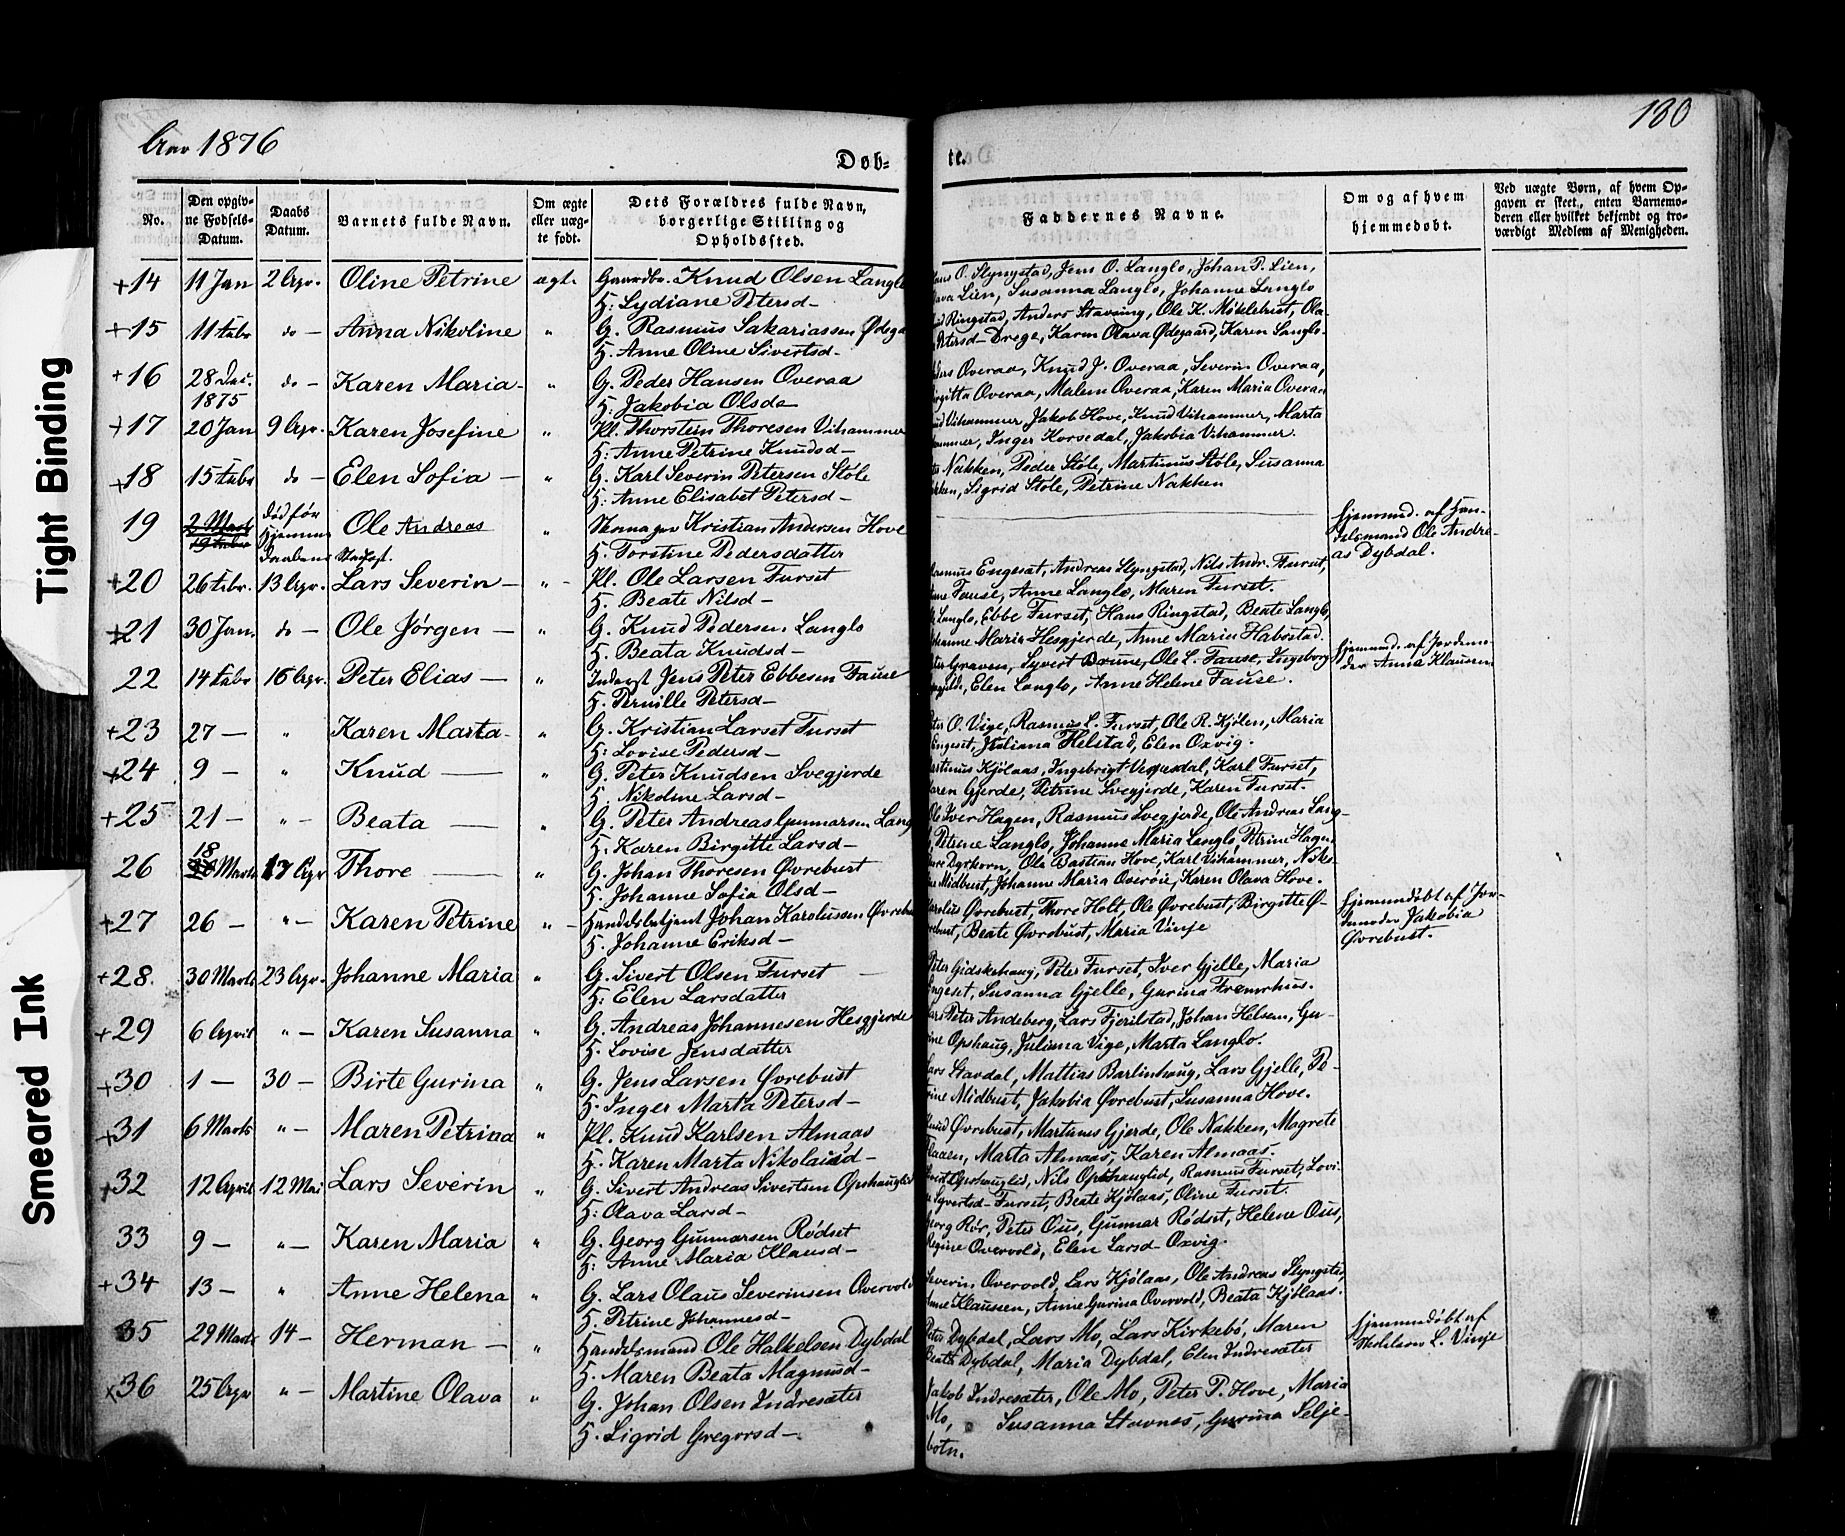 Tight Binding
Smeared Ink
1876
130
Døb=
te.
No.
Den opgiv-
ne Fødsels-
Datum.
Daabs
Datum.
Barnets fulde Navn.
Om ægte
eller uæg-
te født.
Dets Forældres fulde Navn,
borgerlige Stilling og
Opholdssted.
Faddernes Navne.
Om og af hvem
hjemmedøbt.
Ved uægte Børn, af hvem Op-
gaven er skeet, enten Barnemo-
deren eller hvilket bekjendt og tro-
værdigt Medlem af Menigheden.
+14 11 Jan 2 Apr. Oline Petrine ægt. Gaardbr. Knud Olsen Langlo
H. Lydiane Petersd-
O. Slyngstad, Jens O. Langlo, Johan P. Lien,
Lien, Susanna Langlo, Johanne Langlo
+15 11 Febr do - Anna Nikoline " G. Rasmus Sakariassen
H. Anne Oline Sivertsd-
Ringstad, Anders Stavning, Ole K. Møkelebust, Ola-
Petersd- Drege, Karen Olava Ødegaard, Karen Langlo-
+16 28 Dec. do - Karen Maria- " G. Peder Hansen Overaa
1875 H. Jakobia Olsd-
Overaa, Knud J. Overaa, Severin Overaa,
Overaa, Malene Overaa, Karen Maria Overaa
+17 20 Jan 9 Apr. Karen Josefine " Pl. Thorstein Thoresen Vihammer
H: Anne Petrine Knudsd-
Vihammer Jakob Hove, Knud Vihammer, Marta
Inger Korsedal, Jakobia Vihammer.
+18 15 Febr do - Elen Sofia - " G. Karl Severin Petersen Støle
H: Anne Elisabet Petersd-
Nakken, Peder Støle, Martinus Støle, Susanna
Sigrid Støle, Petrine Nakken
19 2 Marts død før Ole Andreas " Skomager Kristian Andersen Hove
19 Febr Hjemme
Daabens Stadfest. H. Torstine Pedersdatter
Hjemmed. af Han-
delsmand Ole Andre-
as Dybdal.
+20 26 Febr. 13 Apr. Lars Severin - " - Pl. Ole Larsen Furset
H. Beate Nilsd-
Rasmus Engeset, Andreas Slyngstad, Nils Andr. Furset,
Fause, Anne Langlo, Maren Furset.
+21 30 Jan. do - Ole Jørgen - " G. Knud Pedersen Langlo
H. Beata Knudsd-
Langlo, Ebbe Furset, Hans Ringstad, Beate Langlo,
Johanne Marie Hesgjerde, Anne Maria Habostad.
22 14 Febr 16 Apr. Peter Elias - " Inderst Jens Peter Ebbesen Fause
H. Pernille Petersd-
Peter Graven, Syvert Brune, Ole L. Fause, Ingeborg
Elen Langlo, Anne Helene Fause.
Hjemmed. af Jordemo-
der Anna Klausen
+23 27 - " Karen Marta- " G. Kristian Larset Furset
H: Lovise Pedersd-
Peter O. Vige, Rasmus L. Furset, Ole R. Kjølen, Maria
Engeset, Juliana Helstad, Elen Oxvig.
+24 9 - " Knud - " G. Peter Knudsen Svegjerde
H. Nikoline Larsd-
Martinus Kjølaas, Ingebrigt Karl Furset,
Karen Gjerde, Petrine Svegjerde, Karen Furset.
+25 21 - " - Beata - " G. Peter Andreas Gunnarsen Lang
H. Karen Birgitte Larsd-
Ole Iver Hagen, Rasmus Svegjerde, Ole Andreas Lang-
Petrine Langlo, Johanne Maria Langlo, Petrine Hagen
26 18 Marts 17 Apr Thore - " G. Johan Thoresen Øvrebust
H. Johanne Sofia Olsd-
Dyrkorn, Ole Bastian Hove, Karl Vihammer,
Midbust, Johanne Maria Overøie, Karen Olava Hove.
+27 26 - " - Karen Petrine " - Handelsbetjent Johan Karolussen
H. Johanne Eriksd-
Karolus Øvrebust, Thore Holt, Ole Øvrebust, Birgitte Ø-
vrebust, Beate Øvrebust, Maria Vinje
Hjemmedøbt af Jor-
demoder Jakobia
Øvrebust.
+28. 30 Marts 23 Apr. Johanne Maria " G. Sivert Olsen Furset -
H: Elen Larsdatter
Peter Gidskehaug, Peter Furset, Iver Gjelle, Maria
Engeset, Susanna Gjelle, Gurina Fremrhus.
+29 6 April " - Karen Susanna " G. Andreas Johannesen Hesgjerde
H. Lovise Jensdatter
Lars Peter Andeberg, Lars Fjerilstad, Johan Helsem, Gu-
rine Opshaug, Juliana Vige, Marta Langlo.
+30 1 - 30 - Birte Gurina " G. Jens Larsen Øvrebust
H. Inger Marta Petersd-
Lars Stavdal, Mattias Barlinhaug, Lars Gjelle, Pe-
trine Midbust, Jakobia Øvrebust, Susanna Hove.
+31 6 Marts " - Maren Petrina " Pl. Knud Karlsen Almaas
H. Karen Marta Nikolaisd-
Knud Øvrebust, Martinus Gjerde, Ole Nakken, Magrete
Flaaen, Marta Almaas, Karen Almaas.
+32 12 April 12 Mai Lars Severin " G. Sivert Andreas Sivertsen Opshauglid
H: Olava Larsd-
Sivert Opshauglid, Nils Opshauglid, Rasmus Furset, Lovi-
Syvertsd- Furset, Beate Kjølaas, Oline Furset.
33 9 - " - Karen Maria " G. Georg Gunnarsen Rødset
H: Anne Maria Klausd-
Georg Rør, Peter Ous, Gunnar Rødset, Helene Ous,
Regine Overvold, Elen Larsd- Oxvig.
+34 13 - " Anne Helena " G. Lars Olaus Severinsen Overvold
H. Petrine Johannesd-
Severin Overvold, Lars Kjølaas, Ole Andreas Slyngstad,
Anne Klausen, Anne Gurina Overvold, Beata Kjølaas.
35 29 Marts 14 - Herman - " Handelsmand Ole Halkelsen Dybdal
H. Maren Beata Magnusd-
Peter Dybdal, Lars Mo, Lars Kirkebø, Maren
Beate Dybdal, Maria Dybdal, Elen Indresæter
Hjemmedøbt af
Skolelærer L. Vinje
+36 25 Apr " - Martine Olava " G. Johan Olsen Indresæter
H. Sigrid Gregorsd-
Jakob Indresæter, Ole Mo, Peter P. Hove, Maria
Mo, Susanna Stavnes, Gurina Selje-
botn.